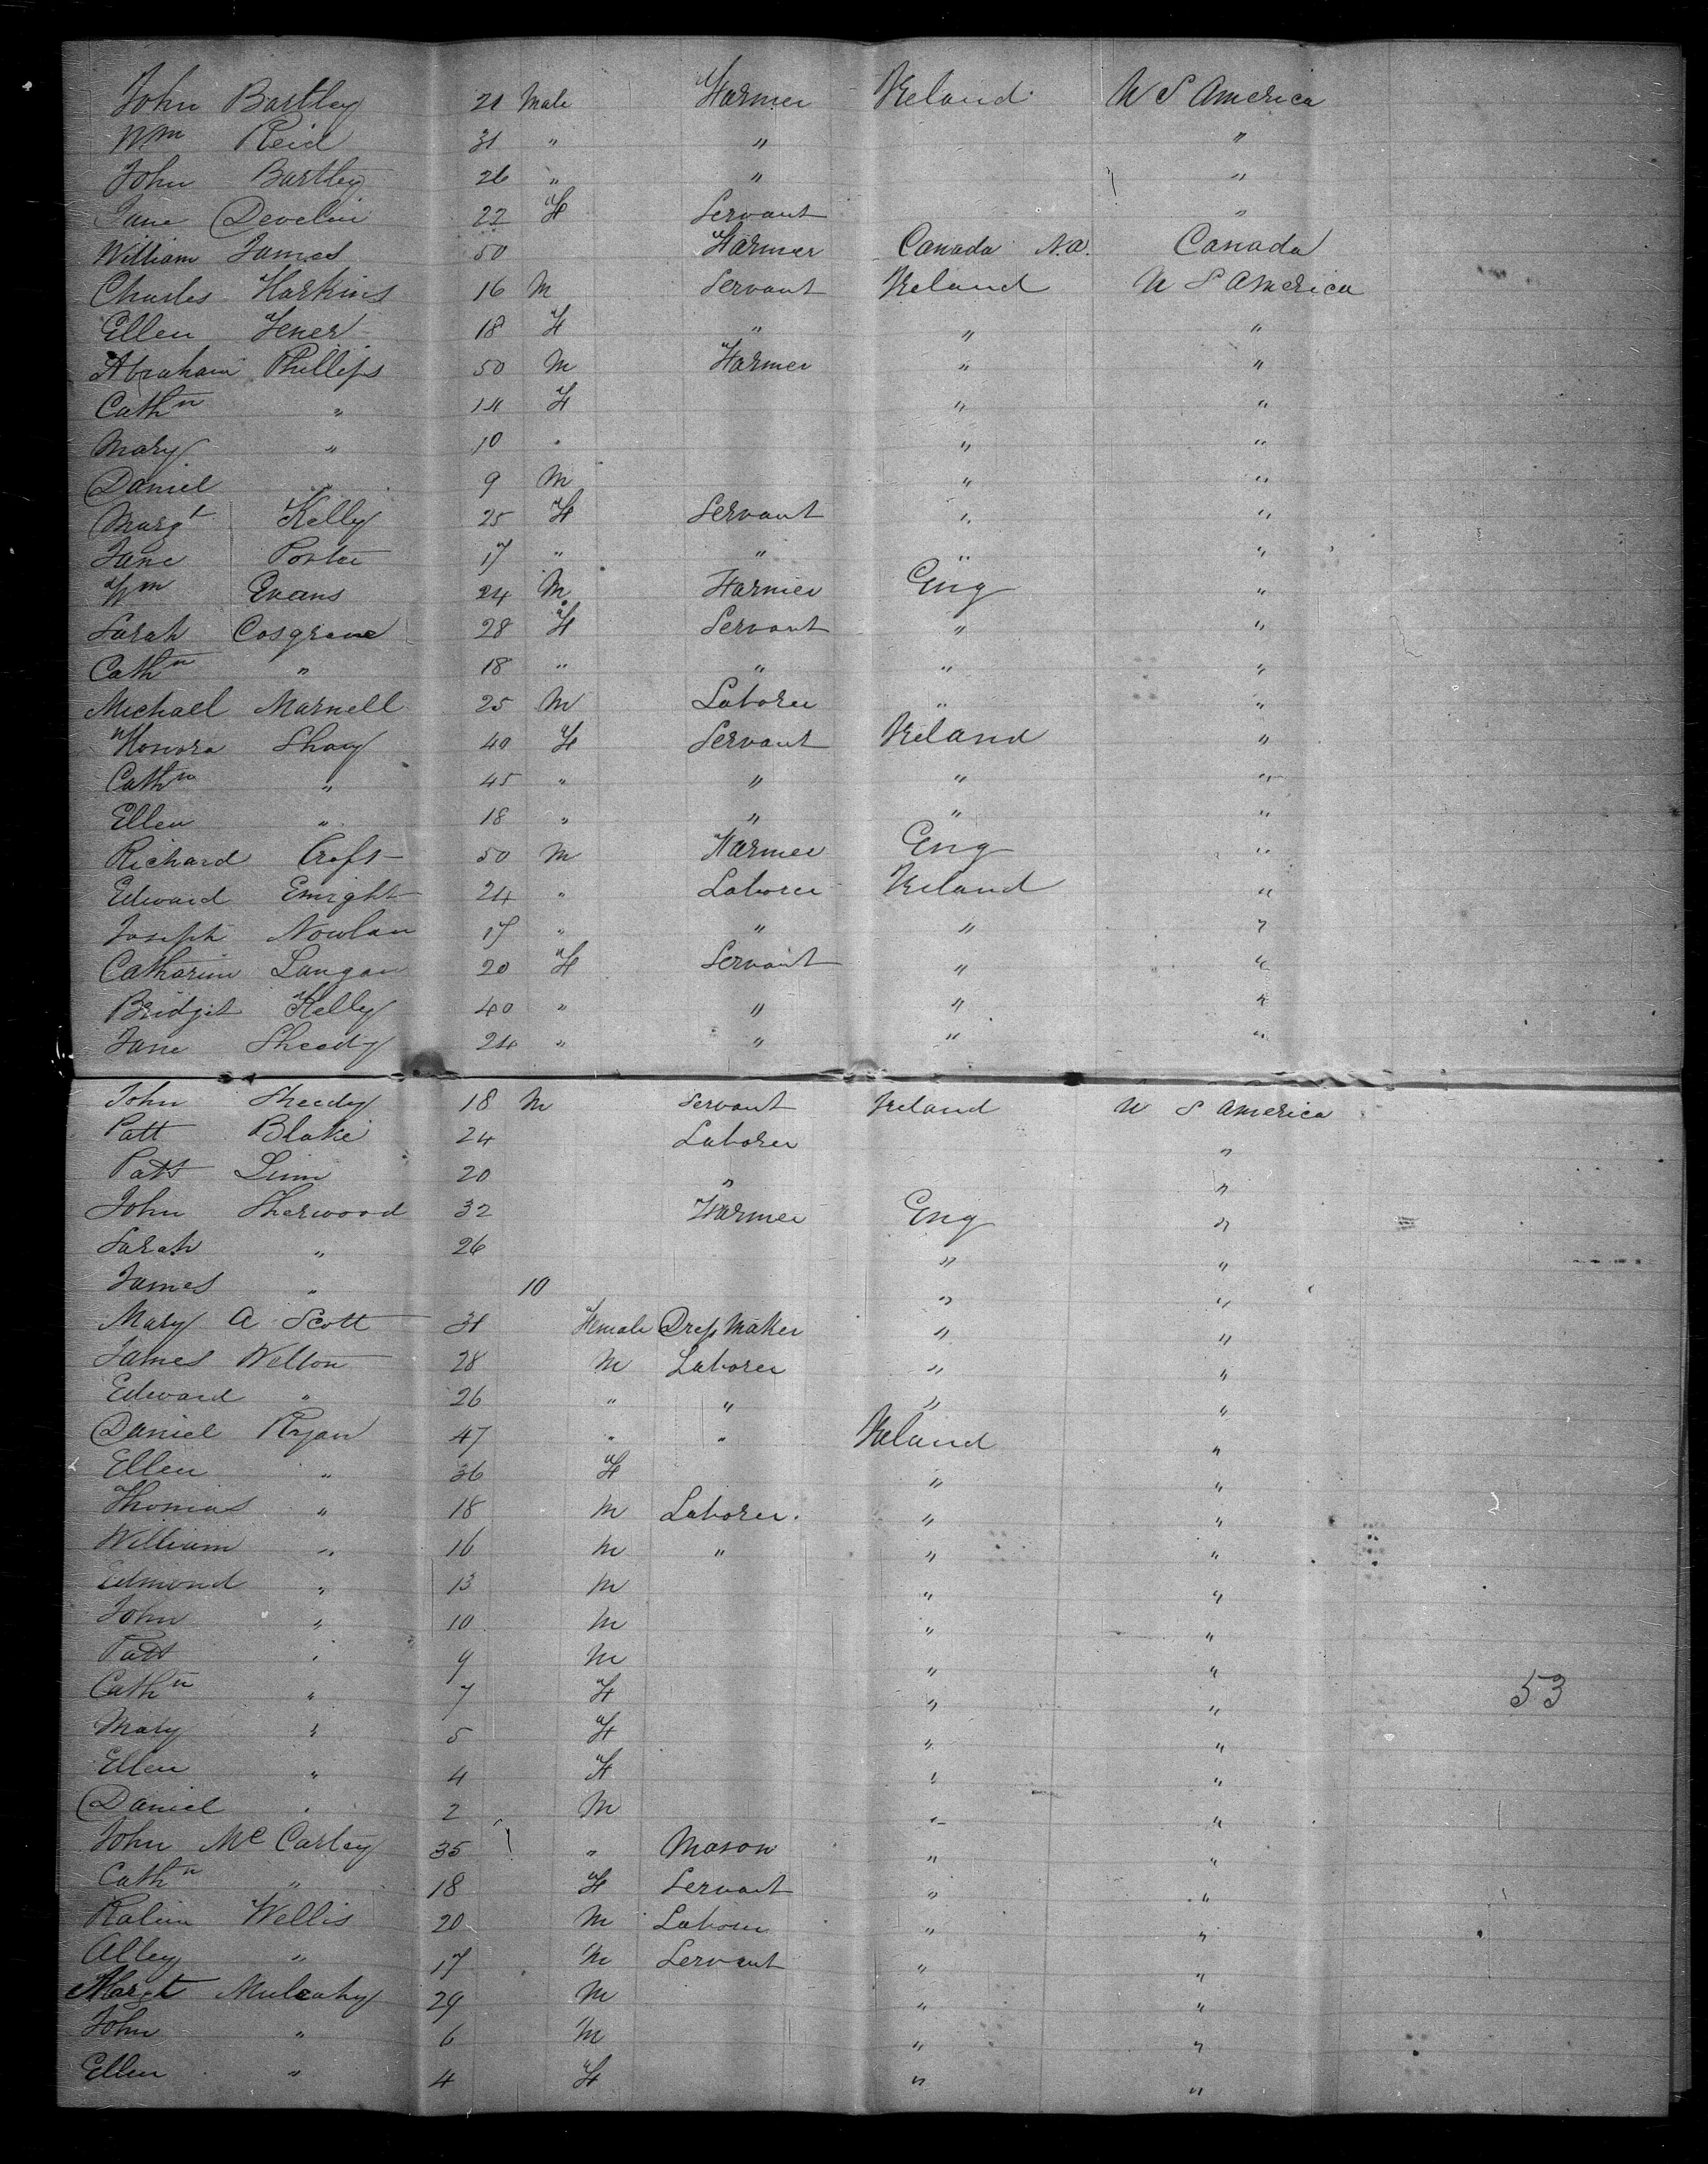 John Bartley 21 Male Farmer Ireland U S America
Wm Reid 31 " " "
John Bartley 26 " " "
Jane Develin 22 F Servant "
William James 50 Farmer Canada N.A. Canada
Charles Harkins 16 M Servant Ireland U S America
Ellen 18 F " " "
Abraham Phillips 50 M Farmer " "
Cathn " 14 F " "
Mary " 10 " " "
Daniel " 9 M " "
Margt Kelly 25 F Servant " "
Jane Porter 17 " " " "
Wm Evans 24 M Farmer Eng "
Sarah Cosgrave 28 F Servant " "
Cathn " 18 " " " "
Michael Marnell 25 M Laborer " "
Honora Shay 40 F Servant Ireland "
Cathn " 45 " " " "
Ellen " 18 " " " "
Richard Croft 50 M Farmer Eng "
Edward Enright 24 " Laborer Ireland "
Joseph Nowlan 17 " " " "
Catharine Langan 20 F Servant " "
Bridget Kelly 40 " " " "
Jane Sheedy 24 " " " "
John Sheedy 18 M Servant Ireland U S America
Patt Blake 24 Laborer "
Patt Linn 20 " "
John Sherwood 32 Farmer Eng "
Sarah " 26 " "
James " 10 " "
Mary A Scott 31 Female Dress Maker " "
James Welton 28 M Laborer " "
Edward " 26 " " " "
Daniel Ryan 47 " " Ireland "
Ellen " 36 F " "
Thomas " 18 M Laborer. " "
William " 16 M " " "
Edmond " 13 M " "
John " 10 M " "
Patt " 9 M " "
Cathn " 7 F " " 53
Mary " 5 F " "
Ellen " 4 F " "
Daniel " 2 M " "
John Mc Carley 35 " Mason " "
Cathn " 18 F Servant " "
Wellis 20 M Laborer " "
Alley " 17 M Servant " "
Margt Mulcahy 29 M " "
John " 6 M " "
Ellen " 4 F " "